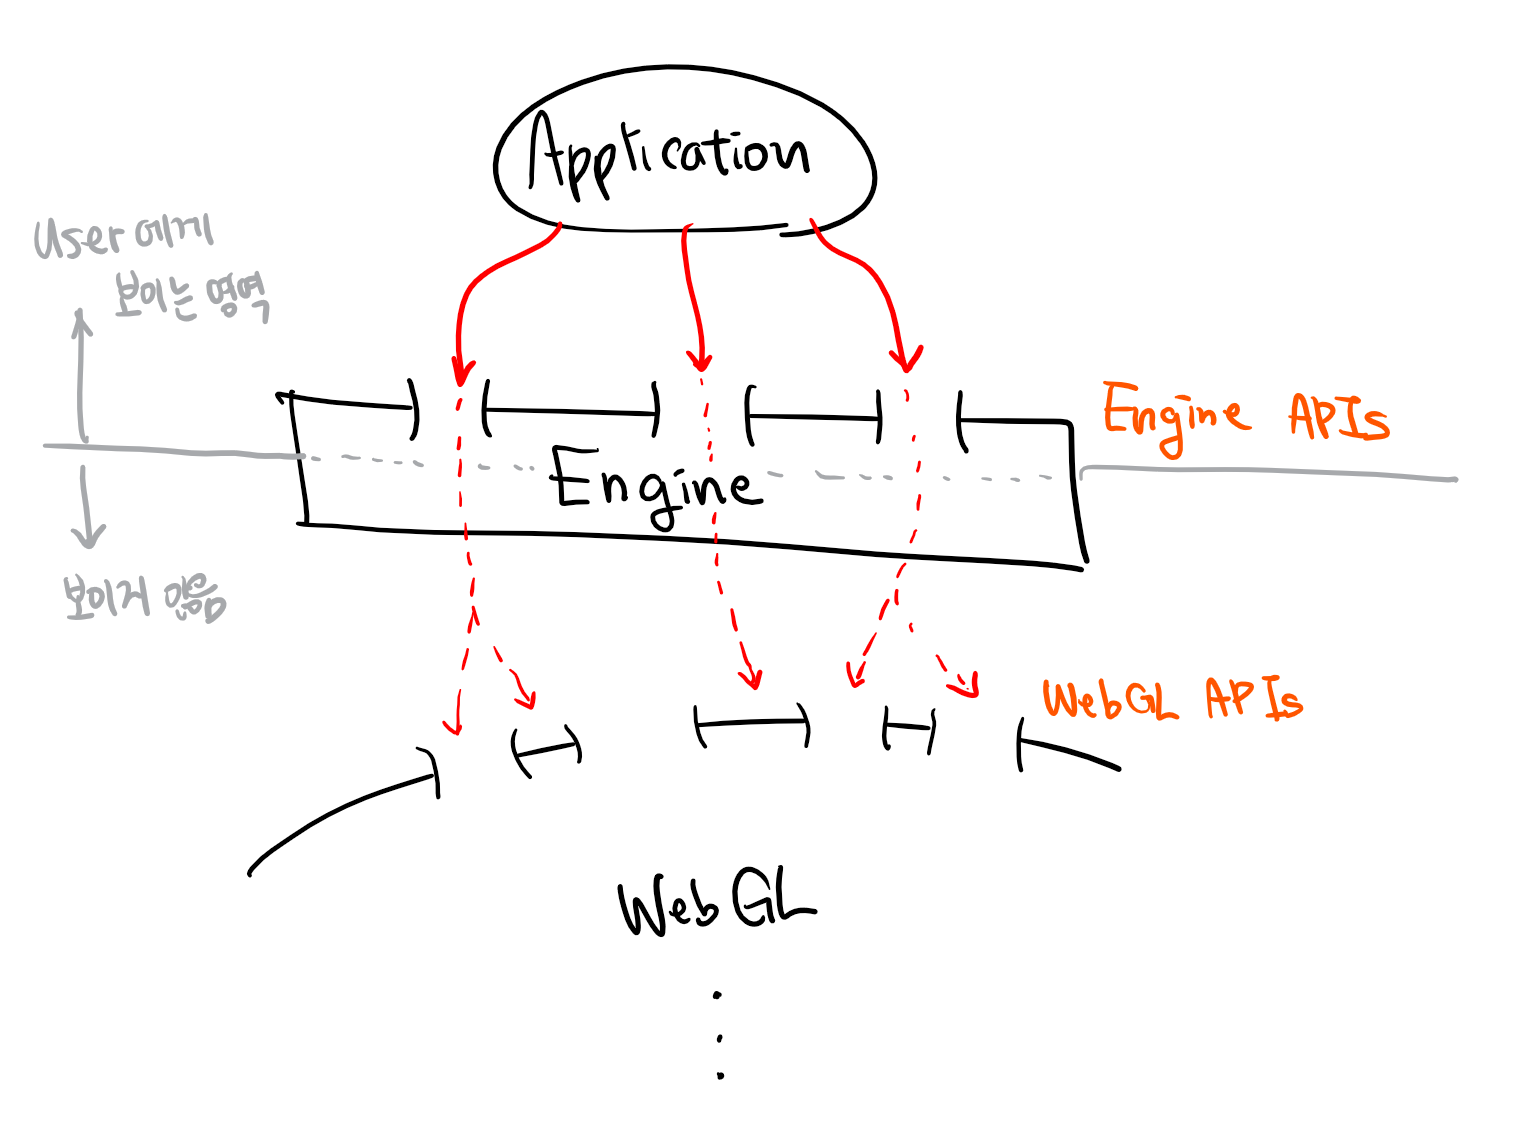 Application
User 에게
보이는 영역
Engine APIs
Engine
보이지 않음
WebGL APIs
WebGL